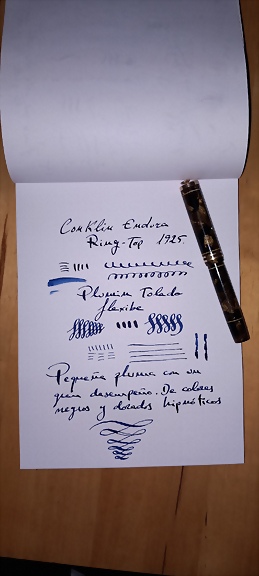 Conklin Endura
Ring-Top 1925.
Plumin Toledo
flexible
Pequeña pluma con un
gran desempeño. De colores
negros y dorados hipnóticos